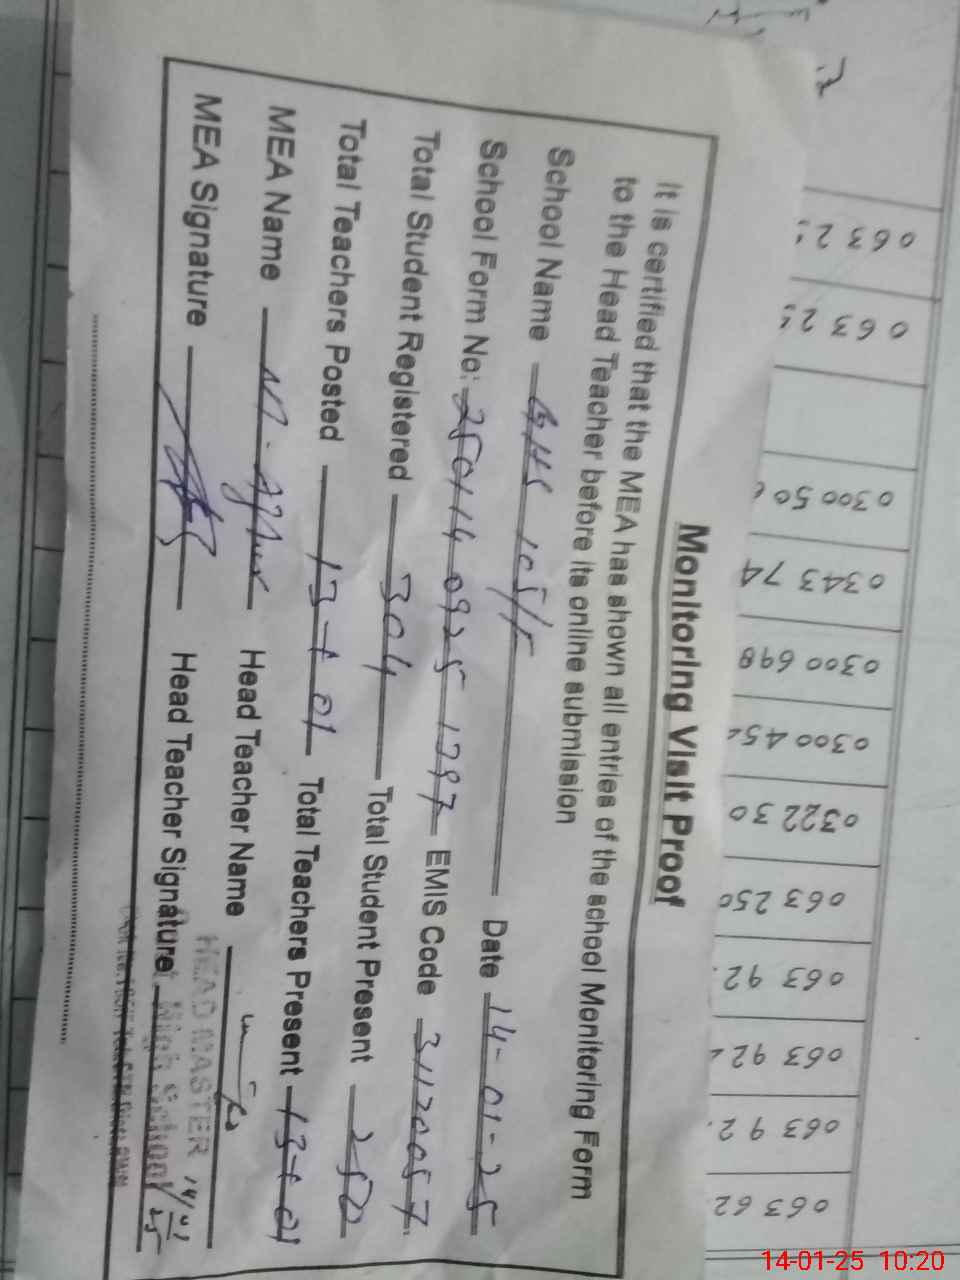 Monitoring Visit Proof
It is certified that the MEA has shown all entries of the school Monitoring Form
to the Head Teacher before its online submission
School Name GHS 105/F Date 14-01-25
School Form No: 250114 0925 1397 EMIS Code 31120057
Total Student Registered 304 Total Student Present 250
Total Teachers Posted 13+01 Total Teachers Present 13+01
MEA Name Head Teacher Name
MEA Signature Head Teacher Signature
HEAD MASTER 14/01/25
High School
063 2
063 2
0300 50
0343 74
0300 698
0300 45
0322 30
063 250
063 92
063 92
063 92
063 62
14-01-25 10:20